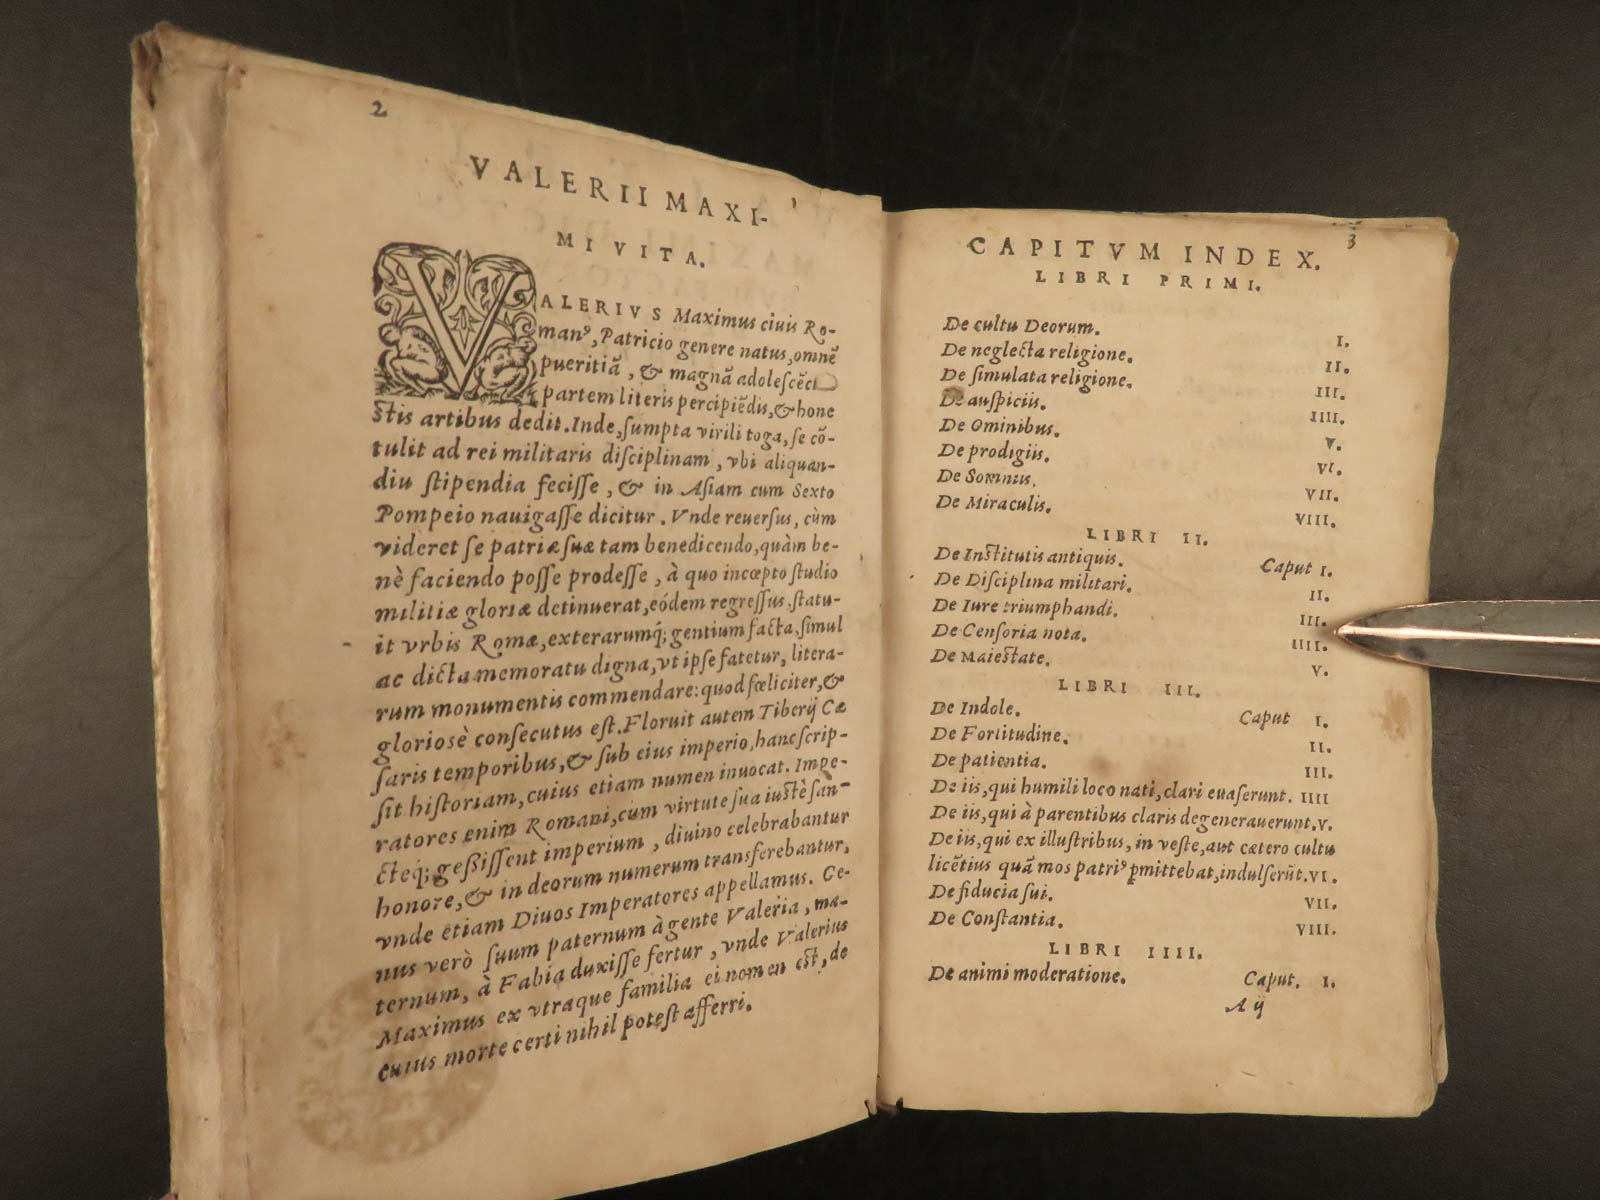 2
VALERII MAXI-
MI VITA.
VALERIVS Maximus ciuis Ro-
manꝰ, Patricio genere natus, omnē
pueritiā, & magnā adolescēci
partem literis percipiēdis, & hone
stis artibus dedit. Inde, sumpta virili toga, se cō-
tulit ad rei militaris disciplinam, vbi aliquan-
diu stipendia fecisse, & in Asiam cum Sexto
Pompeio nauigasse dicitur. Vnde reuersus, cùm
videret se patriæ suæ tam benedicendo, quàm be-
nè faciendo posse prodesse, à quo incœpto studio
militiæ gloriæ detinuerat, eódem regressus, statu-
it vrbis Romæ, exterarumq́; gentium facta, simul
ac dicta memoratu digna, vt ipse fatetur, litera-
rum monumentis commendare: quod fœliciter, &
gloriosè consecutus est. Floruit autem Tiberij Cæ
saris temporibus, & sub eius imperio, hanc scrip-
sit historiam, cuius etiam numen inuocat. Impe-
ratores enim Romani, cum virtute sua iustè san-
ctéq́; gessissent imperium, diuino celebrabantur
honore, & in deorum numerum transferebantur,
vnde etiam Diuos Imperatores appellamus. Ge-
nus verò suum paternum à gente Valeria, ma-
ternum, à Fabia duxisse fertur, vnde Valerius
Maximus ex vtraque familia ei nomen est, de
cuius morte certi nihil potest afferri.
3
CAPITVM INDEX.
LIBRI PRIMI.
De cultu Deorum. I.
De neglecta religione. II.
De simulata religione. III.
De auspiciis. IIII.
De Ominibus. V.
De prodigiis. VI.
De Somniis. VII.
De Miraculis. VIII.
LIBRI II.
De Institutis antiquis. Caput I.
De Disciplina militari. II.
De Iure triumphandi. III.
De Censoria nota. IIII.
De Maiestate. V.
LIBRI III.
De Indole. Caput I.
De Fortitudine. II.
De patientia. III.
De iis, qui humili loco nati, clari euaserunt. IIII
De iis, qui à parentibus claris degenerauerunt. V.
De iis, qui ex illustribus, in veste, aut cætero cultu
licētius quā mos patriꝰ pmittebat, indulserūt. VI.
De fiducia sui. VII.
De Constantia. VIII.
LIBRI IIII.
De animi moderatione. Caput. I.
A ij